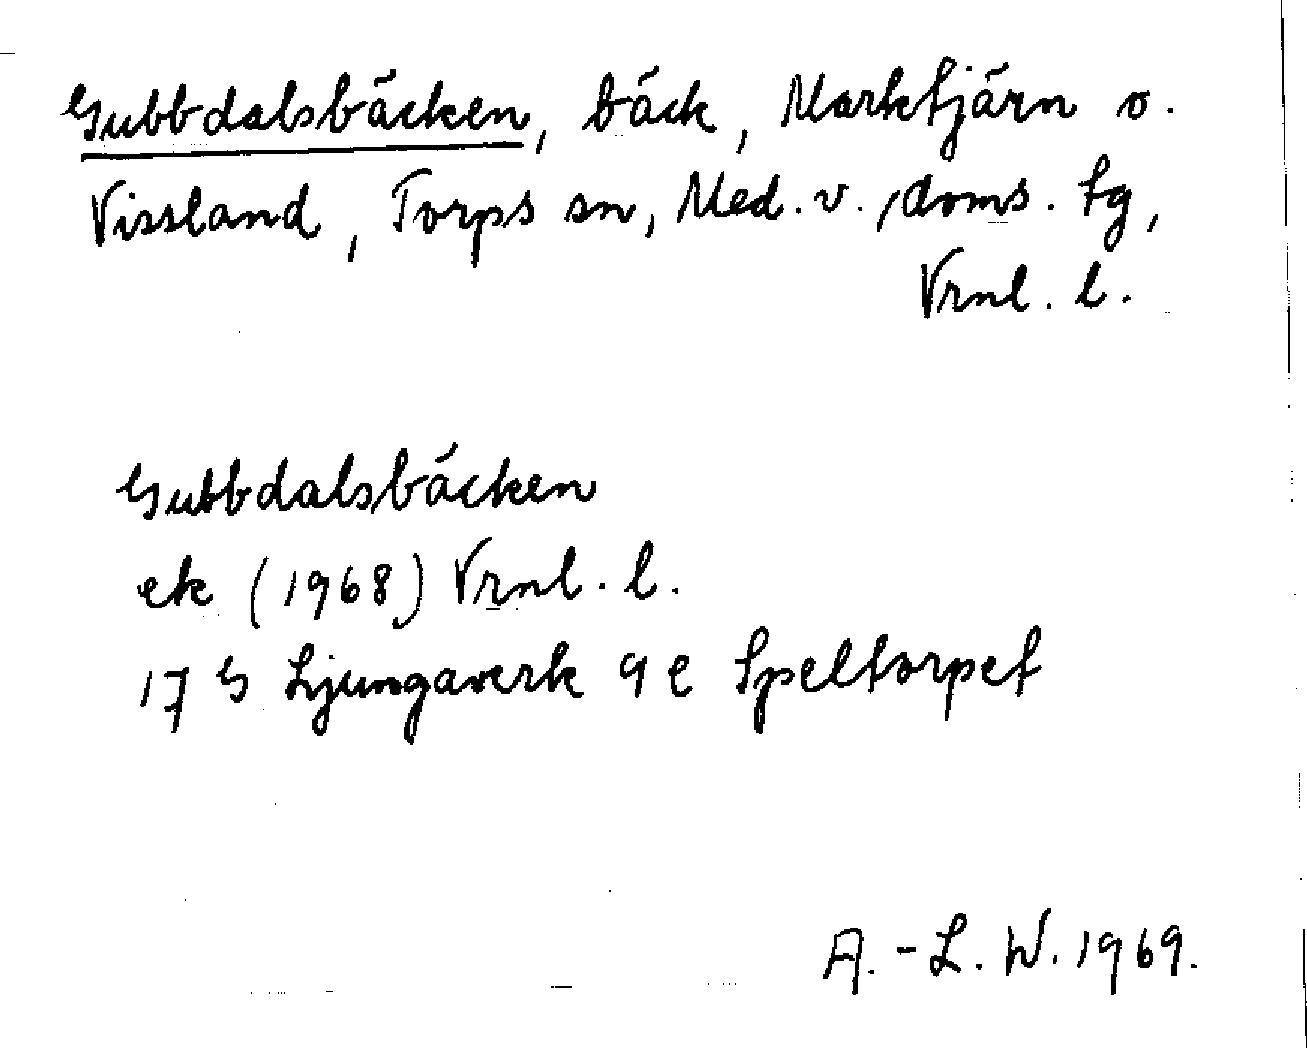 Gubbdalsbäcken, bäck, Marktjärn o.
Vissland, Torps sn, Med. v. doms. tg,
Vrnl. l.
Gubbdalsbäcken
ek (1968) Vrnl. l.
17 G Ljungaverk 9 e Speltorpet
A.-L. W. 1969.